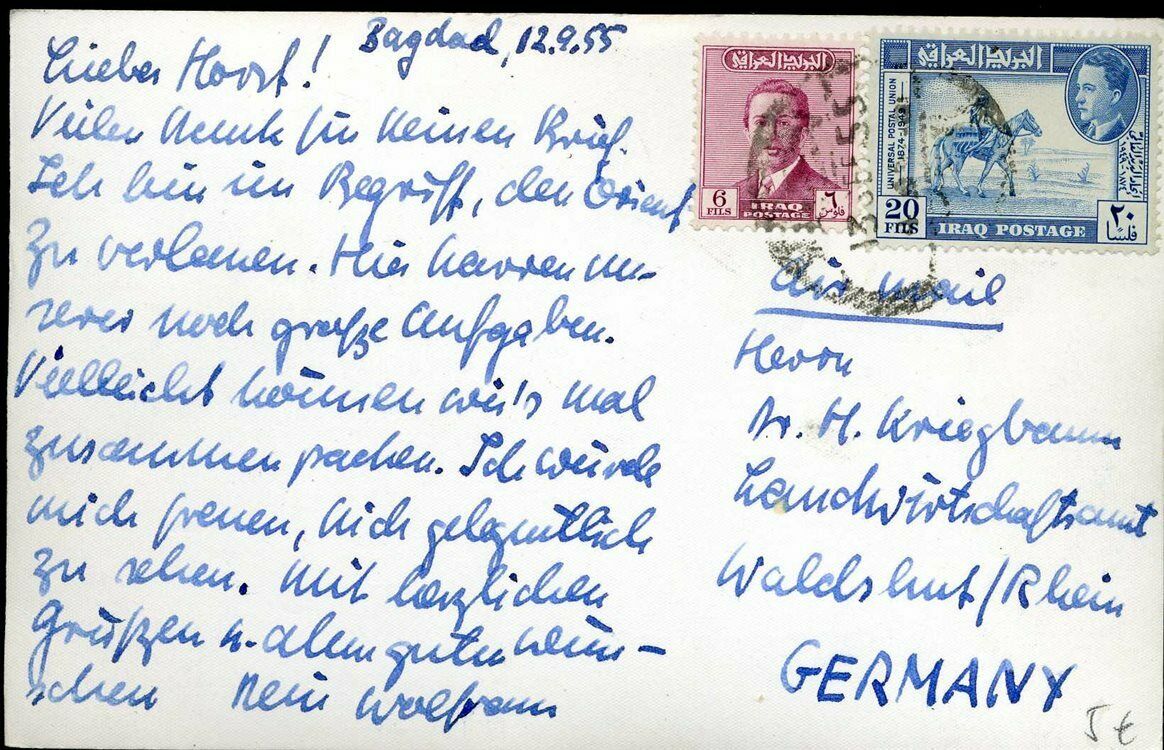 Bagdad, 12.9.55
Lieber Horst!
Vielen Dank für Deinen Brief.
Ich bin im Begriff, den Orient
zu verlassen. Hier harren un-
serer noch große Aufgaben.
Vielleicht können wir's mal
zusammen packen. Ich würde
mich freuen, Dich gelegentlich
zu sehen. Mit herzlichen
Grüßen u. allen guten Wün-
schen Dein Wolfram
البريد العراقي
6 FILS
IRAQ POSTAGE
٦ فلوس
البريد العراقي
UNIVERSAL POSTAL UNION
1874-1949
20 FILS
IRAQ POSTAGE
٢٠ فلسا
air mail
Herrn
Dr. H. Kriegbaum
Landwirtschaftsamt
Waldshut/Rhein
GERMANY
5 €